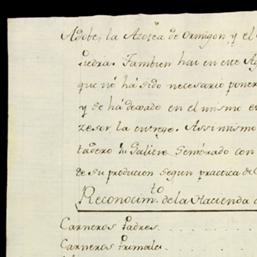 Adobe, la Azotea de Ormigon, y el
Piedra. Tambien hai en este
que no há sido necesario poner
y se há dexado en el mismo
zesor la entrego. Assi mismo
tadero su Galine Sembrado con
de su produsion segun practica de
Reconocim.to de la Hacienda
Carneros Padres
Carneros Primales